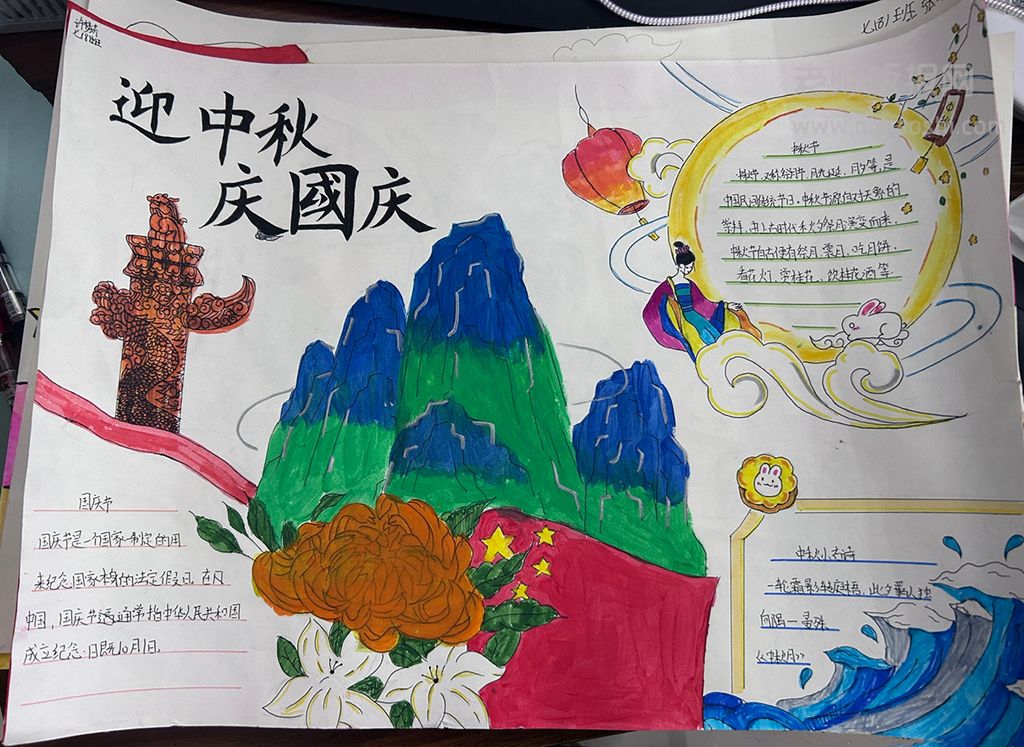 七(8)班
七(3)班
迎中秋
庆國庆
中秋节
中秋节,又称祭月节、月光诞、月夕等,是
中国民间传统节日。中秋节源自对天象的
崇拜,由上古时代秋夕祭月演变而来。
中秋节自古便有祭月、赏月、吃月饼、
看花灯、赏桂花、饮桂花酒等
国庆节
国庆节是一个国家制定的用
来纪念国家本身的法定假日。在
中国,国庆节通常指中华人民共和国
成立纪念日既10月1日。
中秋小古诗
一轮霜影转庭梧,此夕羁人独
向隅一
《中秋月》